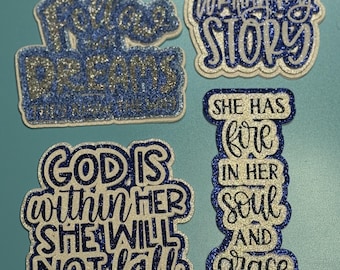 DREAMS
STORY
GOD IS
within HER
SHE WILL
NOT fall
SHE HAS
fire
IN HER
soul
AND
grace